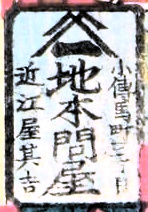 小傳馬町三丁目
地本問屋
近江屋其吉